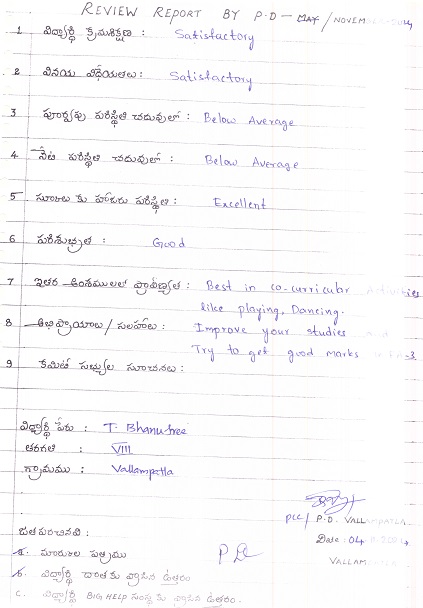 REVIEW REPORT BY P.D – MAY / NOVEM
1 విద్యార్థి క్రమశిక్షణ : Satisfactory
2 వినయ విధేయతలు: Satisfactory
3 పూర్వపు పరిస్థితి చదువులో : Below Average
4 నేటి పరిస్థితి చదువులో : Below Average
5 స్కూలు కు హాజరు పరిస్థితి : Excellent
6 పరిశుభ్రత : Good
7 ఇతర అంశములలో ప్రావీణ్యత : Best in co-curricular Activities
like playing, Dancing.
8 అభిప్రాయాలు / సలహాలు : Improve your studies and
Try to get good marks in
9 కమిటి సభ్యుల సూచనలు :
విద్యార్థి పేరు : T. Bhanusree
తరగతి : VIII
గ్రామము : Vallampatla
PLC / P.D. VALLAMPATLA
జత పరచినవి : Date : 04
a. మార్కుల పత్రము VALLAM
b. విద్యార్థి దాతకు వ్రాసిన ఉత్తరం
c. విద్యార్థి BIG HELP సంస్థ కు వ్రాసిన ఉత్తరం.